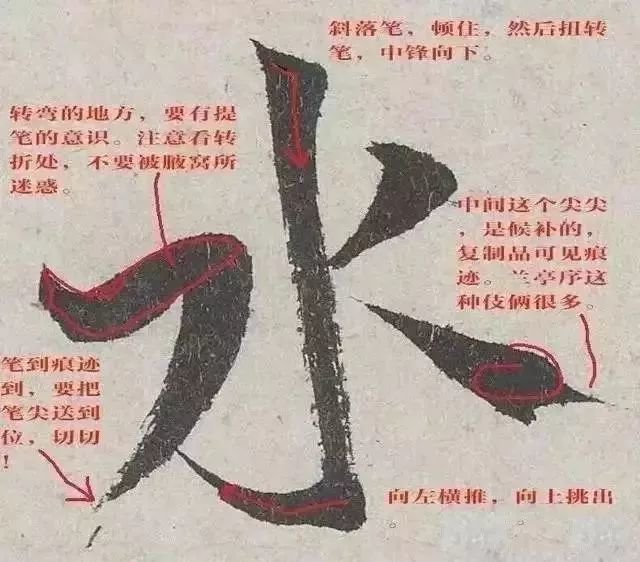 斜落笔，顿住，然后扭转
笔，中锋向下。
转弯的地方，要有提
笔的意识。注意看转
折处，不要被腋窝所
迷惑。
水
中间这个尖尖
，是候补的，
复制品可见痕
迹。兰亭序这
种伎俩很多。
笔到痕迹
到，要把
笔尖送到
位，切切
！
向左横推，向上挑出
。